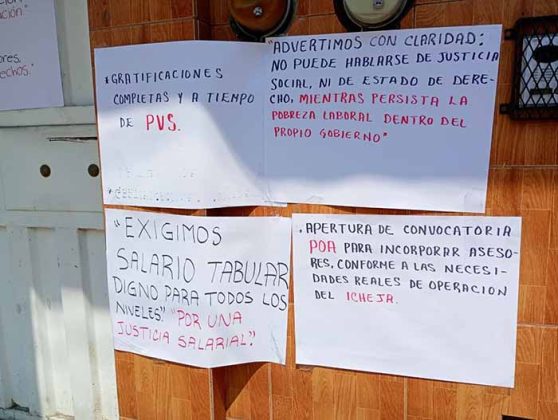 ación."
ores.
echos."
*GRATIFICACIONES
COMPLETAS Y A TIEMPO
DE PVS.
"ADVERTIMOS CON CLARIDAD:
NO PUEDE HABLARSE DE JUSTICIA
SOCIAL, NI DE ESTADO DE DERE-
CHO, MIENTRAS PERSISTA LA
POBREZA LABORAL DENTRO DEL
PROPIO GOBIERNO"
"EXIGIMOS
SALARIO TABULAR
DIGNO PARA TODOS LOS
NIVELES". "POR UNA
JUSTICIA SALARIAL".
. APERTURA DE CONVOCATORIA
POA PARA INCORPORAR ASESO-
RES, CONFORME A LAS NECESI-
DADES REALES DE OPERACION
DEL ICHEJA.